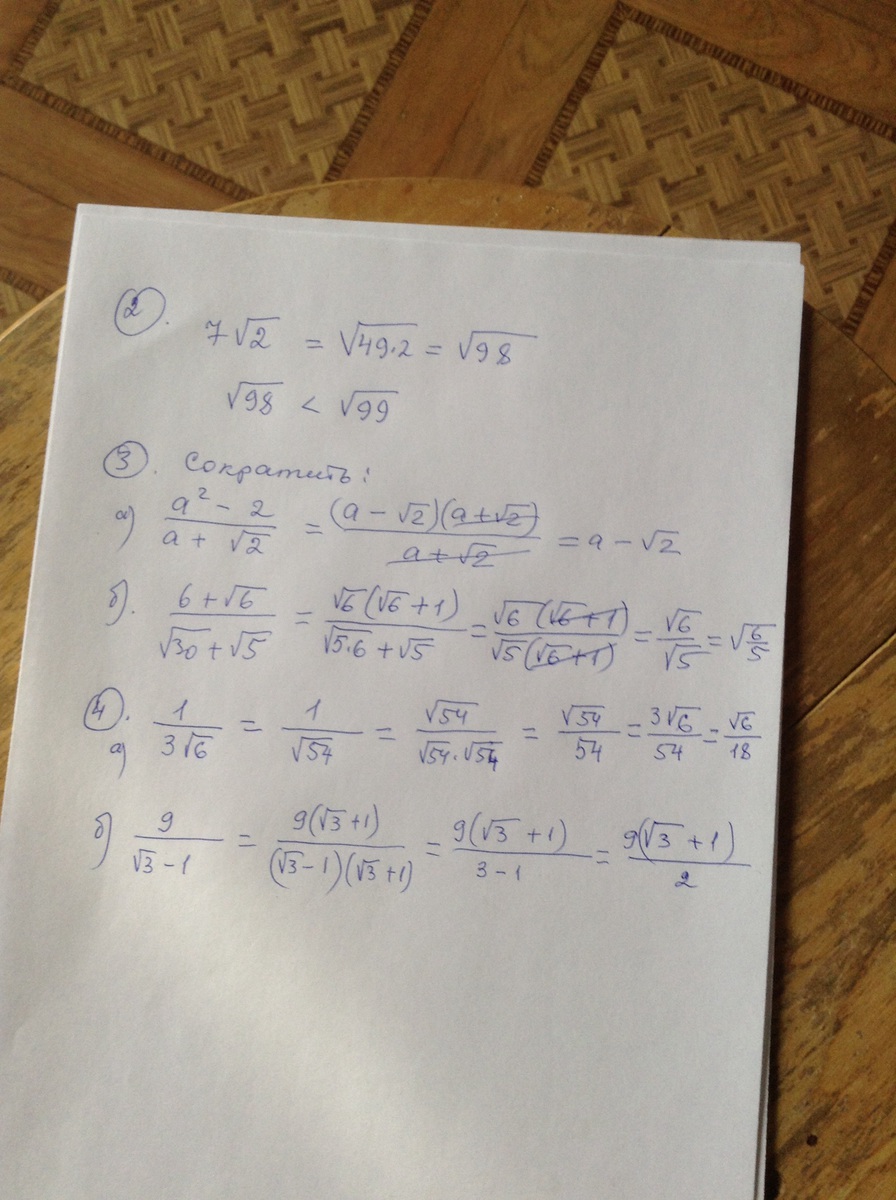 2. 7√2 = √49·2 = √98
√98 < √99
3. Сократить:
а) (a² - 2)/(a + √2) = (a - √2)(a + √2)/(a + √2) = a - √2
б). (6 + √6)/(√30 + √5) = √6(√6 + 1)/(√5·6 + √5) = √6(√6 + 1)/(√5(√6 + 1)) = √6/√5 = √6/5
4. а) 1/(3√6) = 1/√54 = √54/(√54·√54) = √54/54 = 3√6/54 = √6/18
б) 9/(√3 - 1) = 9(√3 + 1)/((√3 - 1)(√3 + 1)) = 9(√3 + 1)/(3 - 1) = 9(√3 + 1)/2